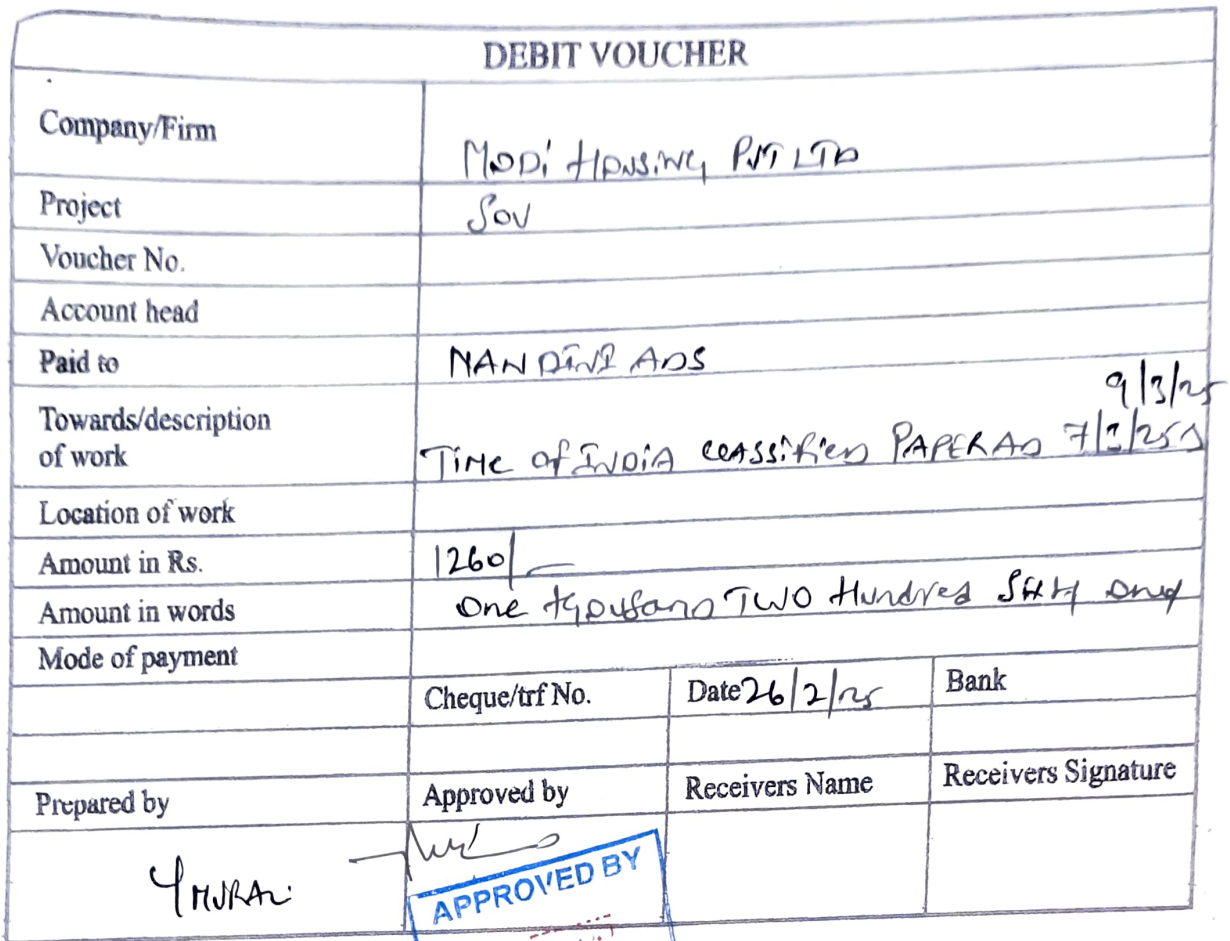 DEBIT VOUCHER
Company/Firm MODi HOUSiNG PVT LTD
Project SOV
Voucher No.
Account head
Paid to NANDINI ADS
9/3/25
Towards/description
of work TiMe of INDiA CLASSiFieD PAPER AD 7/3/25
Location of work
Amount in Rs. 1260/-
Amount in words One thousand TWO Hundred Sixty only
Mode of payment
Cheque/trf No. Date 26/2/25 Bank
Prepared by Approved by Receivers Name Receivers Signature
MURALi
APPROVED BY